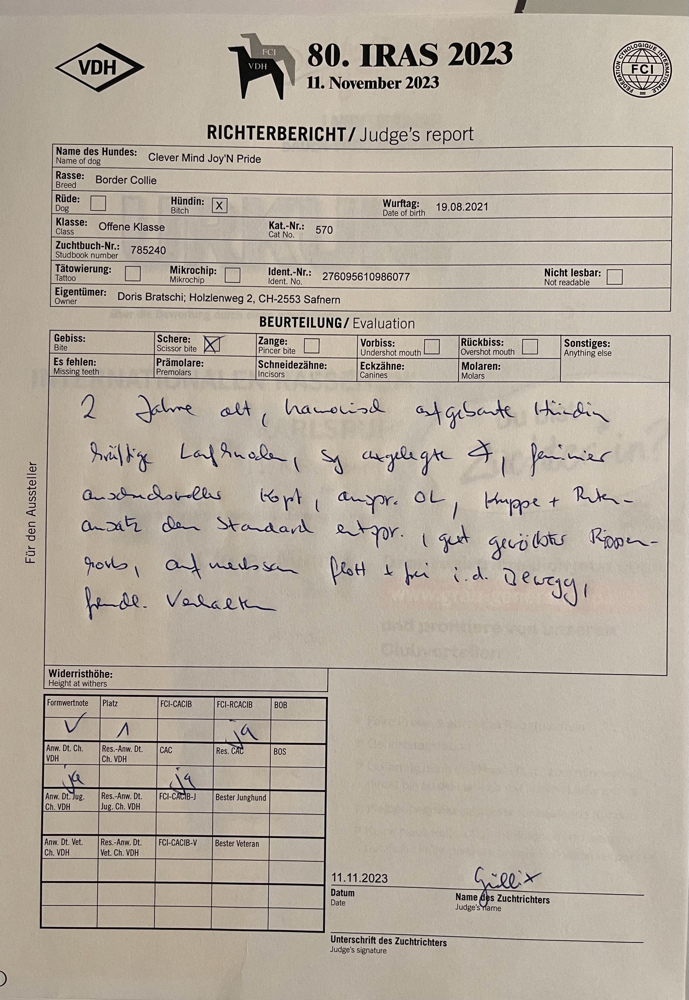 VDH
FCI
VDH
80. IRAS 2023
11. November 2023
FEDERATION CYNOLOGIQUE INTERNATIONALE
FCI
RICHTERBERICHT/ Judge's report
Name des Hundes: Clever Mind Joy'N Pride
Name of dog
Rasse: Border Collie
Breed
Rüde: Hündin: X Wurftag: 19.08.2021
Dog Bitch Date of birth
Klasse: Offene Klasse Kat.-Nr.: 570
Class Cat No.
Zuchtbuch-Nr.: 785240
Studbook number
Tätowierung: Mikrochip: Ident.-Nr.: 276095610986077 Nicht lesbar:
Tattoo Mikrochip Ident. No. Not readable
Eigentümer: Doris Bratschi; Holzlenweg 2, CH-2553 Safnern
Owner
BEURTEILUNG/ Evaluation
Gebiss: Schere: X Zange: Vorbiss: Rückbiss: Sonstiges:
Bite Scissor bite Pincer bite Undershot mouth Overshot mouth Anything else
Es fehlen: Prämolare: Schneidezähne: Eckzähne: Molaren:
Missing teeth Premolars Incisors Canines Molars
2 Jahre alt, harmonisch aufgebaute Hündin
kräftige Laufknochen, angelegte femininer
ausdrucksvoller Kopf, anspr. OL, Kruppe + Ruten-
ansatz dem Standard entspr., gut gewölbter Rippen-
korb, aufmerksam flott + frei i.d. Bewegg,
freundl. Verhalten
Für den Aussteller
Widerristhöhe:
Height at withers
Formwertnote Platz FCI-CACIB FCI-RCACIB BOB
V 1 ja
Anw. Dt. Ch. VDH Res.-Anw. Dt. Ch. VDH CAC Res. CAC BOS
ja ja
Anw. Dt. Jug. Ch. VDH Res.-Anw. Dt. Jug. Ch. VDH FCI-CACIB-J Bester Junghund
Anw. Dt. Vet. Ch. VDH Res.-Anw. Dt. Vet. Ch. VDH FCI-CACIB-V Bester Veteran
11.11.2023
Datum Name des Zuchtrichters
Date Judge's name
Unterschrift des Zuchtrichters
Judge's signature